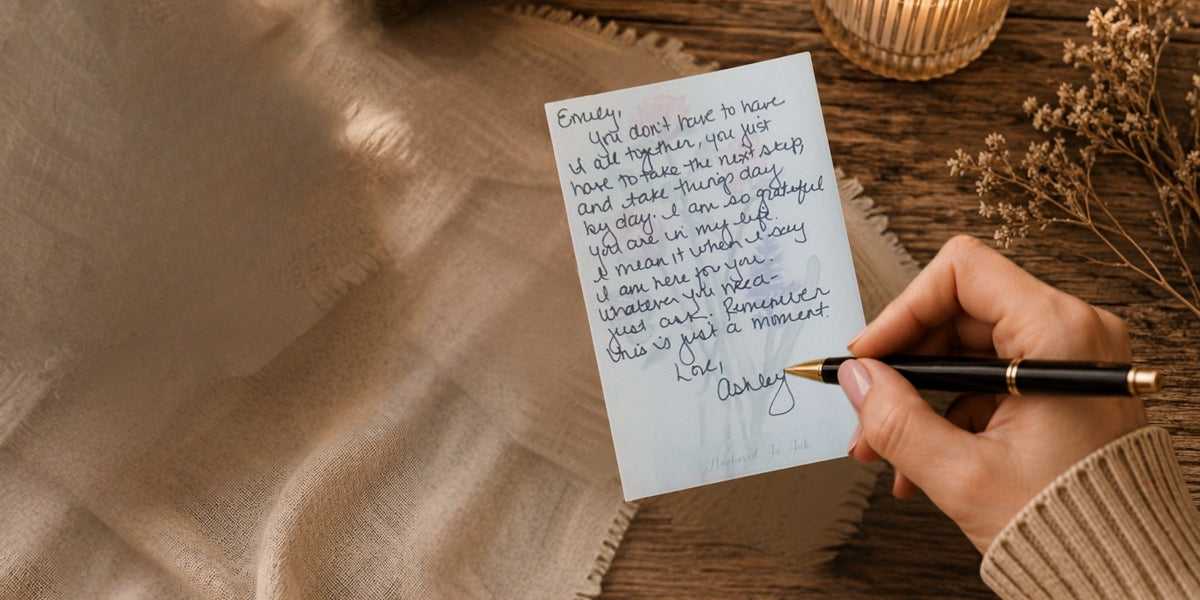 Emily,
You don't have to have
it all together, you just
have to take the next step,
and take things day
by day. I am so grateful
you are in my life.
I mean it when I say
I am here for you.
Whatever you need-
just ask. Remember
this is just a moment.
Love,
Ashley
Anchored In Ink